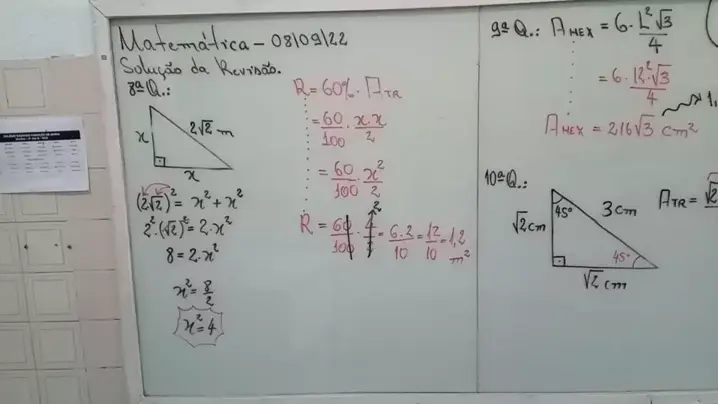 Matemática - 08/09/22
Solução da Revisão.
8ª Q.:
x
2√2 m
x
(2√2)² = x² + x²
2²·(√2)² = 2·x²
8 = 2·x²
x² = 8/2
x² = 4
R = 60%·A_TR
= 60/100 · x·x/2
= 60/100 · x²/2
R = 60/100 · 4/2 = 6·2/10 = 12/10 = 1,2 m²
9ª Q.: A_HEX = 6·L²√3/4
= 6·12²√3/4
A_HEX = 216√3 cm²
10ª Q.:
√2 cm
45°
3 cm
45°
√2 cm
A_TR = √2